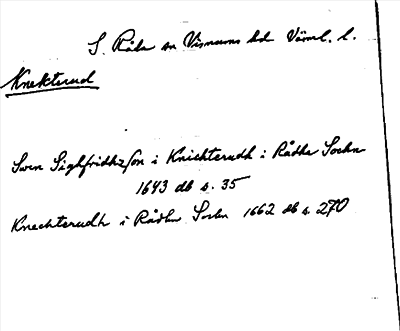 S. Råda sn Visnums hd Värml. l.
Knekterud
Swen Sighfridhzson i Knichterudh i Rådhe Sochn
1643 db s. 35
Knechterudh i Rådhe Sochn 1662 db s. 270